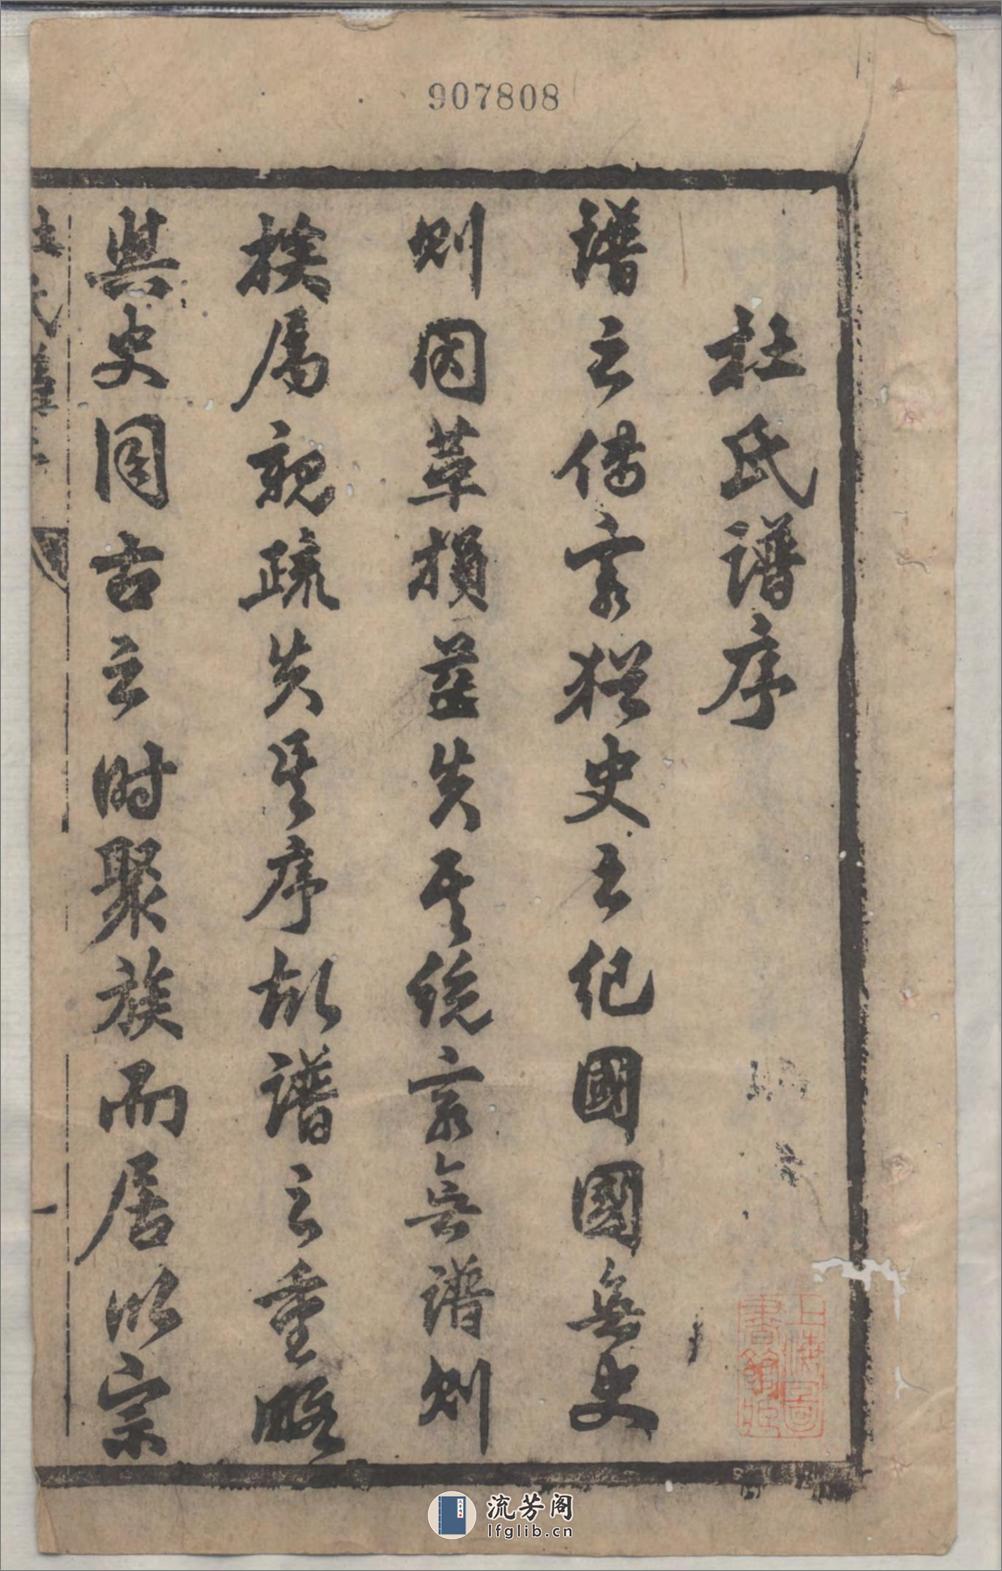 907808
杜氏譜序
譜之傳家猶史之紀國國無史
則因革損益失其統家無譜則
族屬親疏失其序故譜之重略
與史同古之時聚族而居以宗
杜氏譜序
一
上海圖書館藏
流芳阁
lfglib.cn